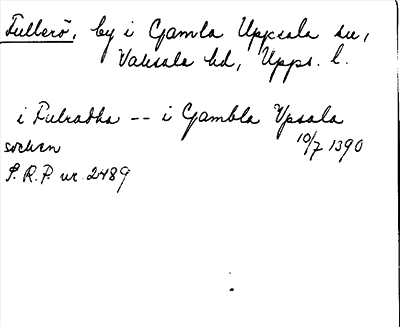 Fullerö, by i Gamla Uppsala sn,
Vaksala hd, Upps. l.
i Fulradha -- i Gambla Vpsala
sochen 10/7 1390
S.R.P. nr 2489